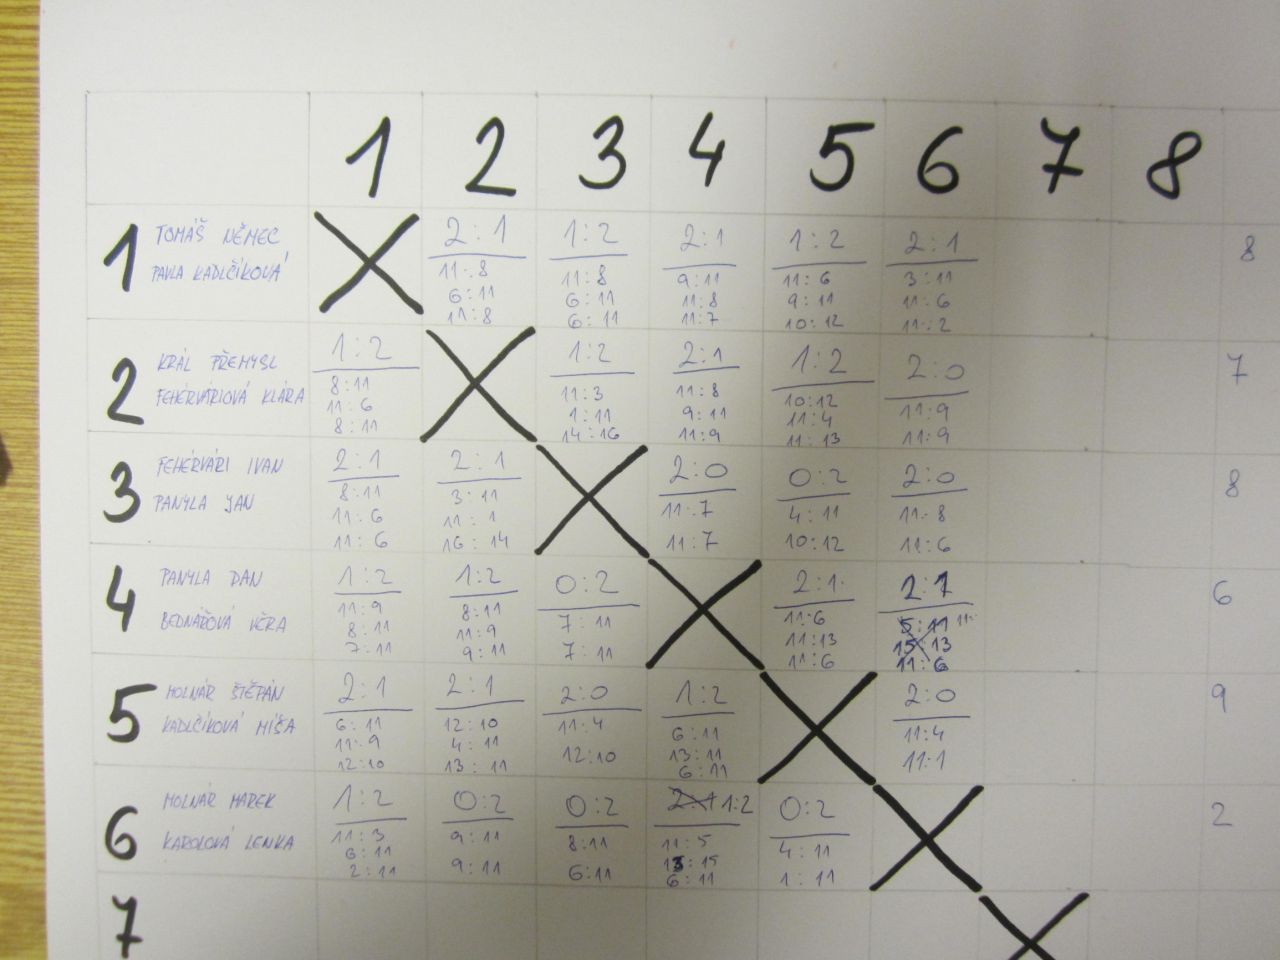 1 2 3 4 5 6 7 8
1 TOMÁŠ NĚMEC 2:1 1:2 2:1 1:2 2:1 8
PAVLA KADLČÍKOVÁ 11:8 11:8 9:11 11:6 3:11
6:11 6:11 11:8 9:11 11:6
11:8 6:11 11:7 10:12 11:2
2 KRÁL PŘEMYSL 1:2 1:2 2:1 1:2 2:0 7
FEHÉRVÁRIOVÁ KLÁRA 8:11 11:3 11:8 10:12 11:9
11:6 1:11 9:11 11:4
8:11 14:16 11:9 11:13 11:9
3 FEHÉRVÁRI IVAN 2:1 2:1 2:0 0:2 2:0 8
PANYLA JAN 8:11 3:11 11:7 4:11 11:8
11:6 11:1
11:6 16:14 11:7 10:12 11:6
4 PANYLA DAN 1:2 1:2 0:2 2:1 2:1 6
BEDNÁŘOVÁ VĚRA 11:9 8:11 7:11 11:6 5:11
8:11 11:9 11:13 15:13
7:11 9:11 7:11 11:6 11:6
5 MOLNÁR ŠTĚPÁN 2:1 2:1 2:0 1:2 2:0 9
KADLČÍKOVÁ MÍŠA 6:11 12:10 11:4 6:11 11:4
11:9 4:11 13:11
12:10 13:11 12:10 6:11 11:1
6 MOLNÁR MAREK 1:2 0:2 0:2 2:1 1:2 0:2 2
KAROLOVÁ LENKA 11:3 9:11 8:11 11:5 4:11
6:11 13:15
2:11 9:11 6:11 6:11 1:11
7